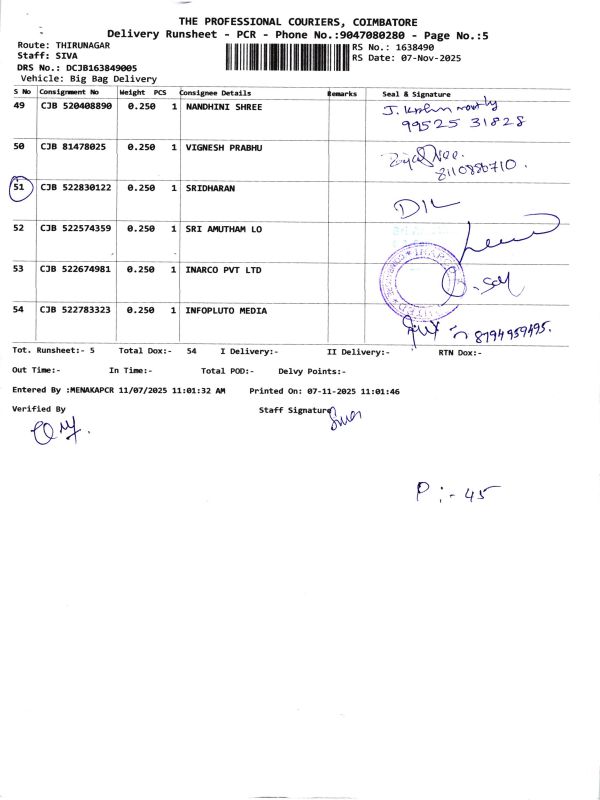 THE PROFESSIONAL COURIERS, COIMBATORE
Delivery Runsheet - PCR - Phone No.:9047080280 - Page No.:5
Route: THIRUNAGAR
RS No.: 1638490
Staff: SIVA
RS Date: 07-Nov-2025
DRS No.: DCJB163849005
Vehicle: Big Bag Delivery
S No Consignment No Weight PCS Consignee Details Remarks Seal & Signature
49 CJB 520408890 0.250 1 NANDHINI SHREE
99525 31828
50 CJB 81478025 0.250 1 VIGNESH PRABHU
8110886710.
51 CJB 522830122 0.250 1 SRIDHARAN
DIL
52 CJB 522574359 0.250 1 SRI AMUTHAM LO
53 CJB 522674981 0.250 1 INARCO PVT LTD
54 CJB 522783323 0.250 1 INFOPLUTO MEDIA
8794959495.
Tot. Runsheet:- 5 Total Dox:- 54 I Delivery:- II Delivery:- RTN Dox:-
Out Time:- In Time:- Total POD:- Delvy Points:-
Entered By :MENAKAPCR 11/07/2025 11:01:32 AM Printed On: 07-11-2025 11:01:46
Verified By Staff Signature
P :- 45